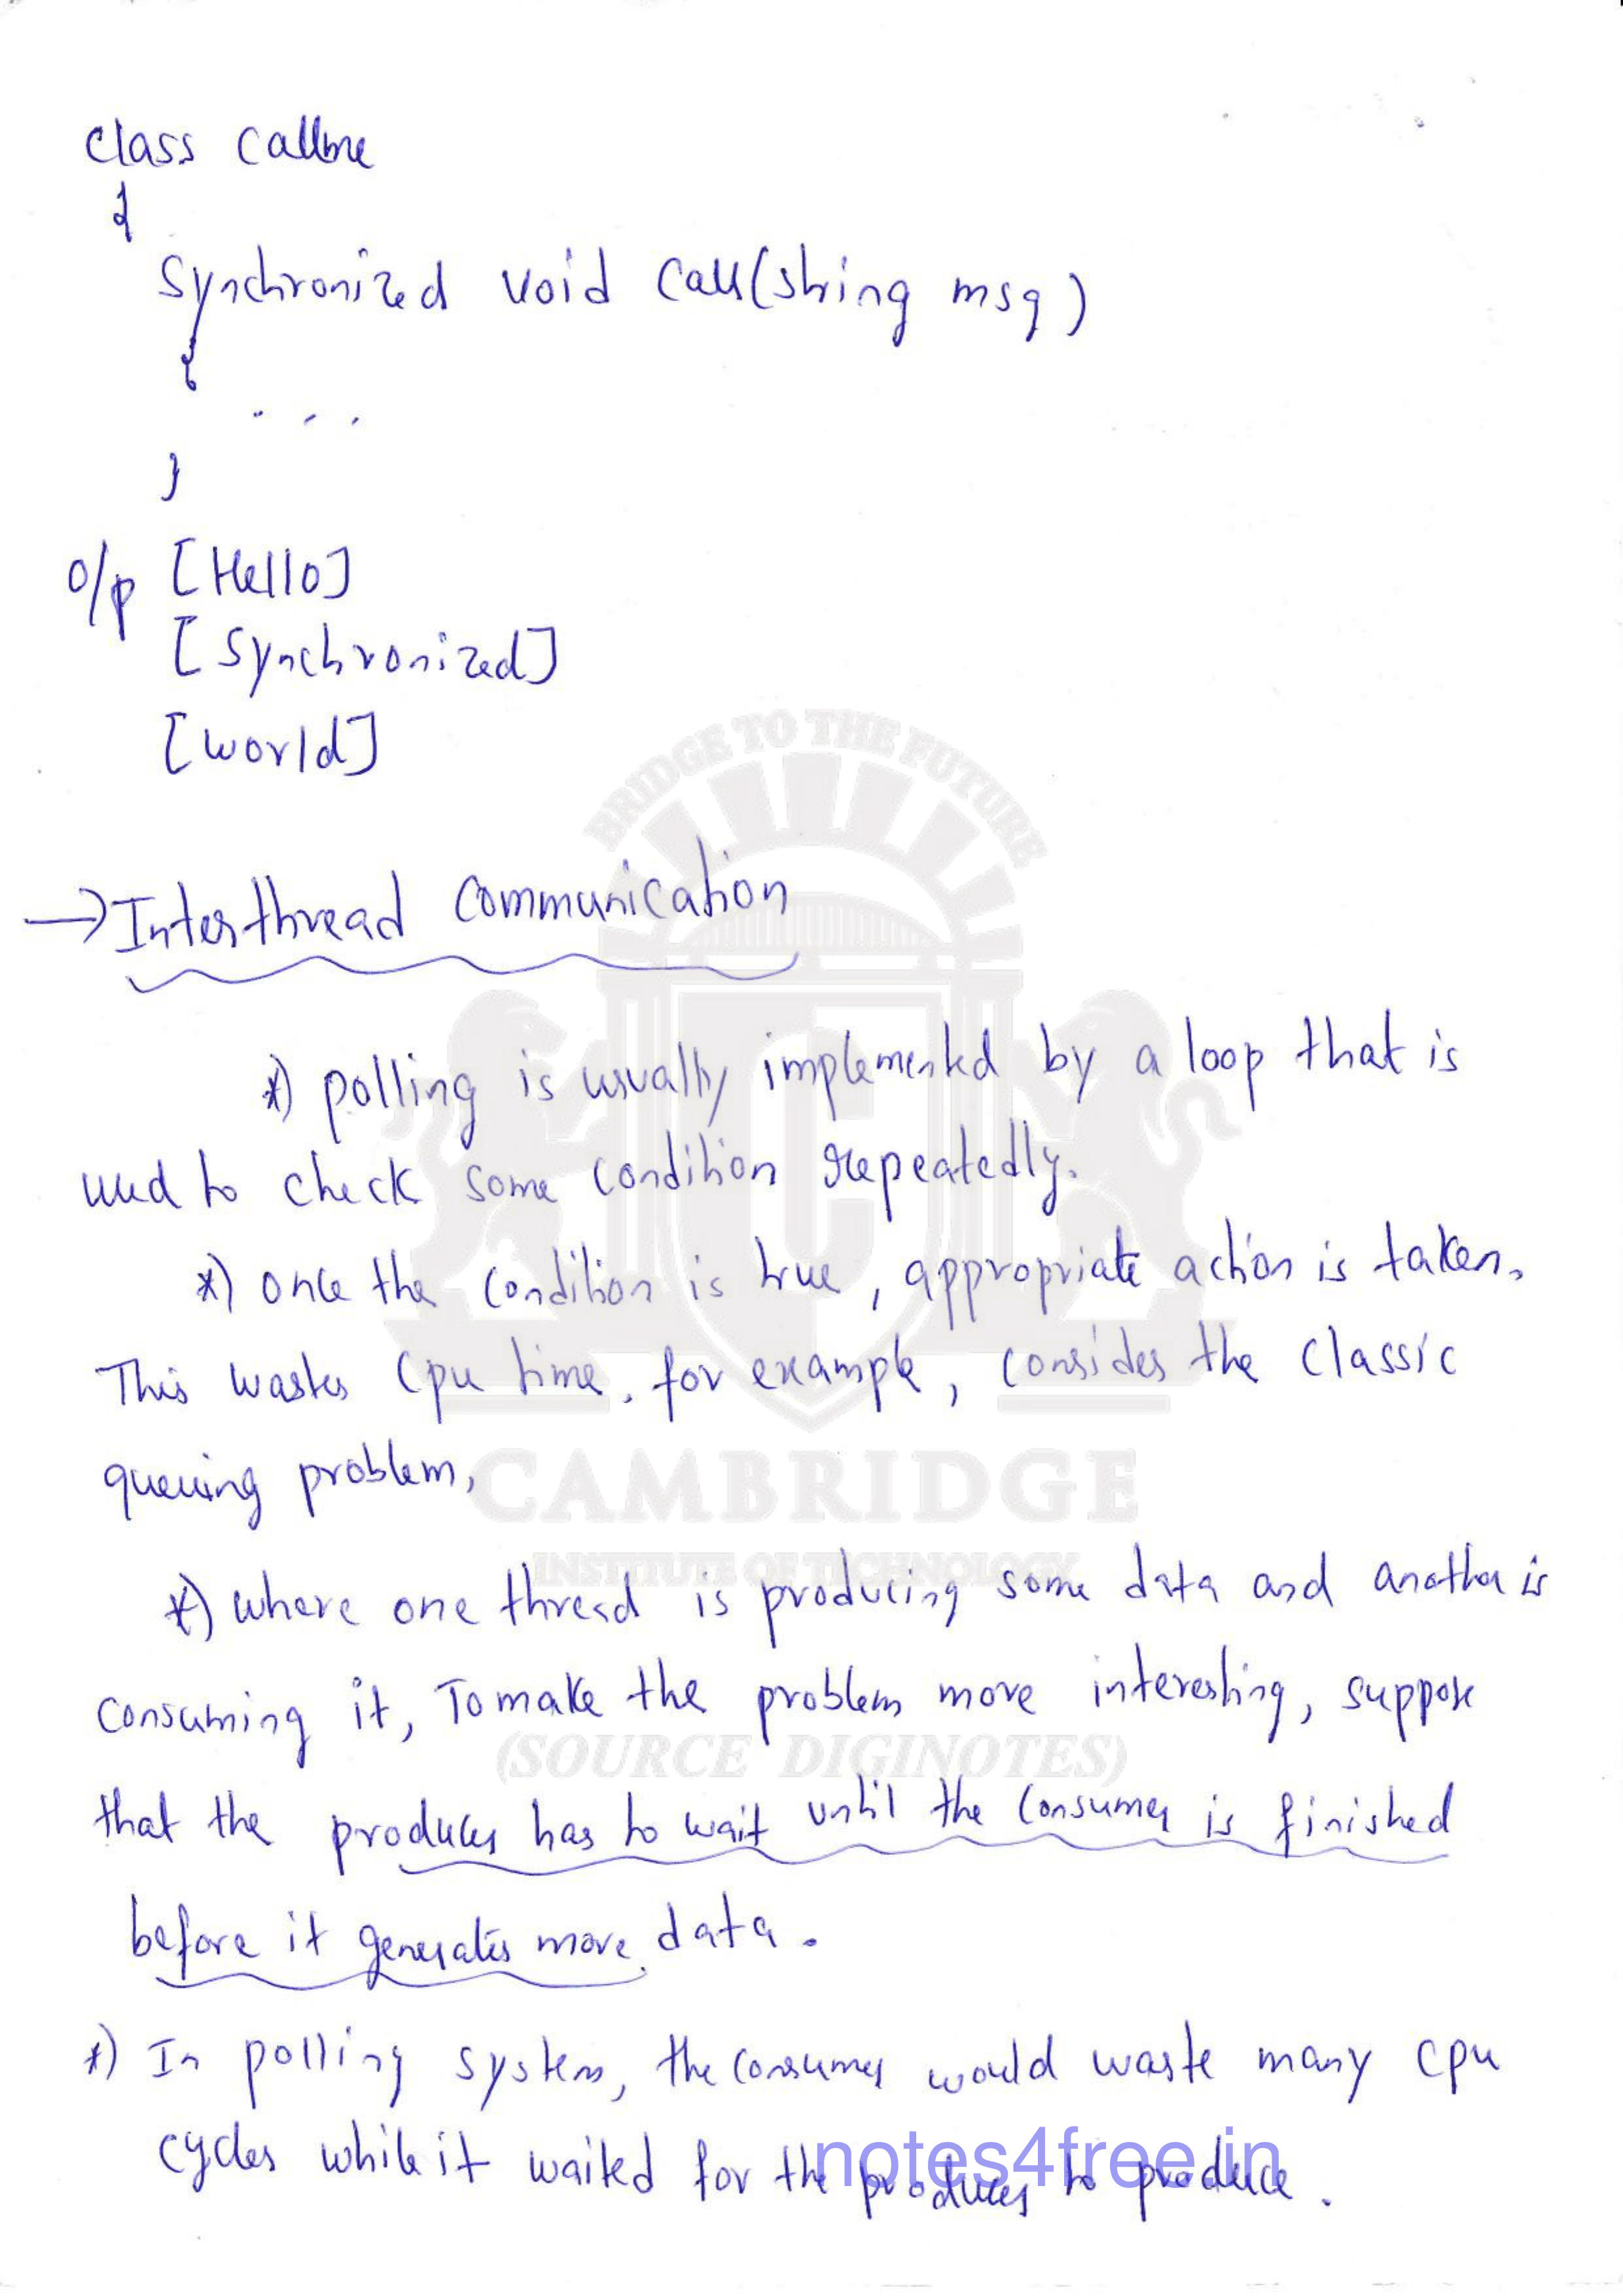 class Callme
{
Synchronized void Call(string msg)
{
. . . .
}
o/p [Hello]
[Synchronized]
[world]
BRIDGE TO THE FUTURE
→ Interthread Communication
*) polling is usually implemented by a loop that is
used to check some condition repeatedly.
*) once the condition is true, appropriate action is taken.
This wastes Cpu time. for example, consider the classic
queuing problem,
CAMBRIDGE
INSTITUTE OF TECHNOLOGY
*) where one thread is producing some data and another is
consuming it, To make the problem more interesting, suppose
(SOURCE DIGINOTES)
that the producer has to wait until the Consumer is finished
before it generates more data.
*) In polling system, the consumer would waste many cpu
cycles while it waited for the producer to produce.
notes4free.in